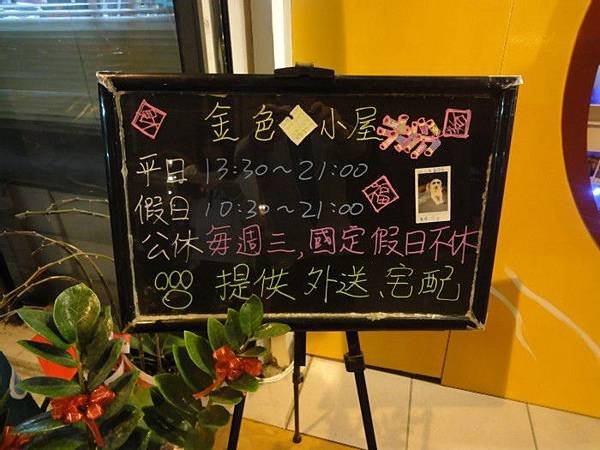 金色小屋
平日 13:30～21:00
假日 10:30～21:00
福
公休每週三,國定假日不休
提供 外送、宅配